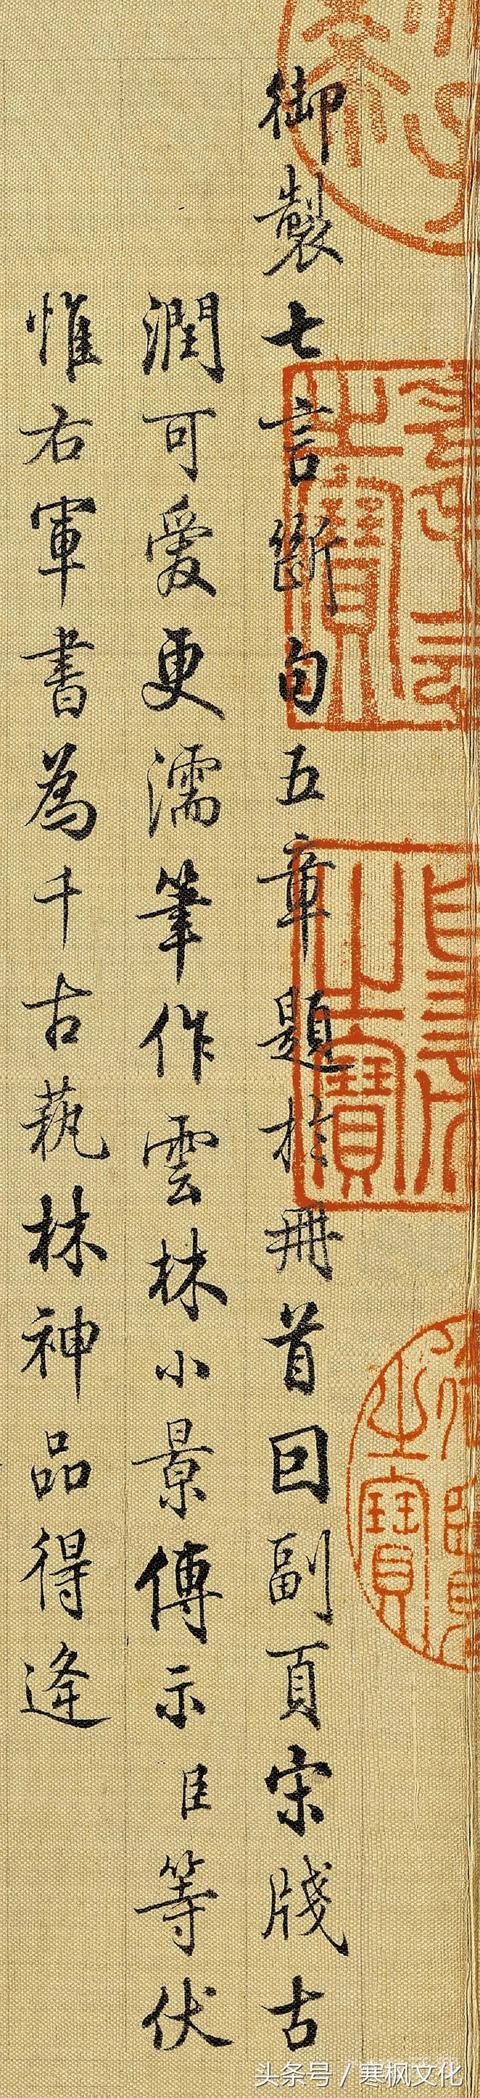 御製七言斷句五章題於冊首因副頁宋牋古
潤可愛更濡筆作雲林小景傳示臣等伏
惟右軍書為千古藝林神品得逢
之寶
之寶
之寶
头条号 / 寒枫文化